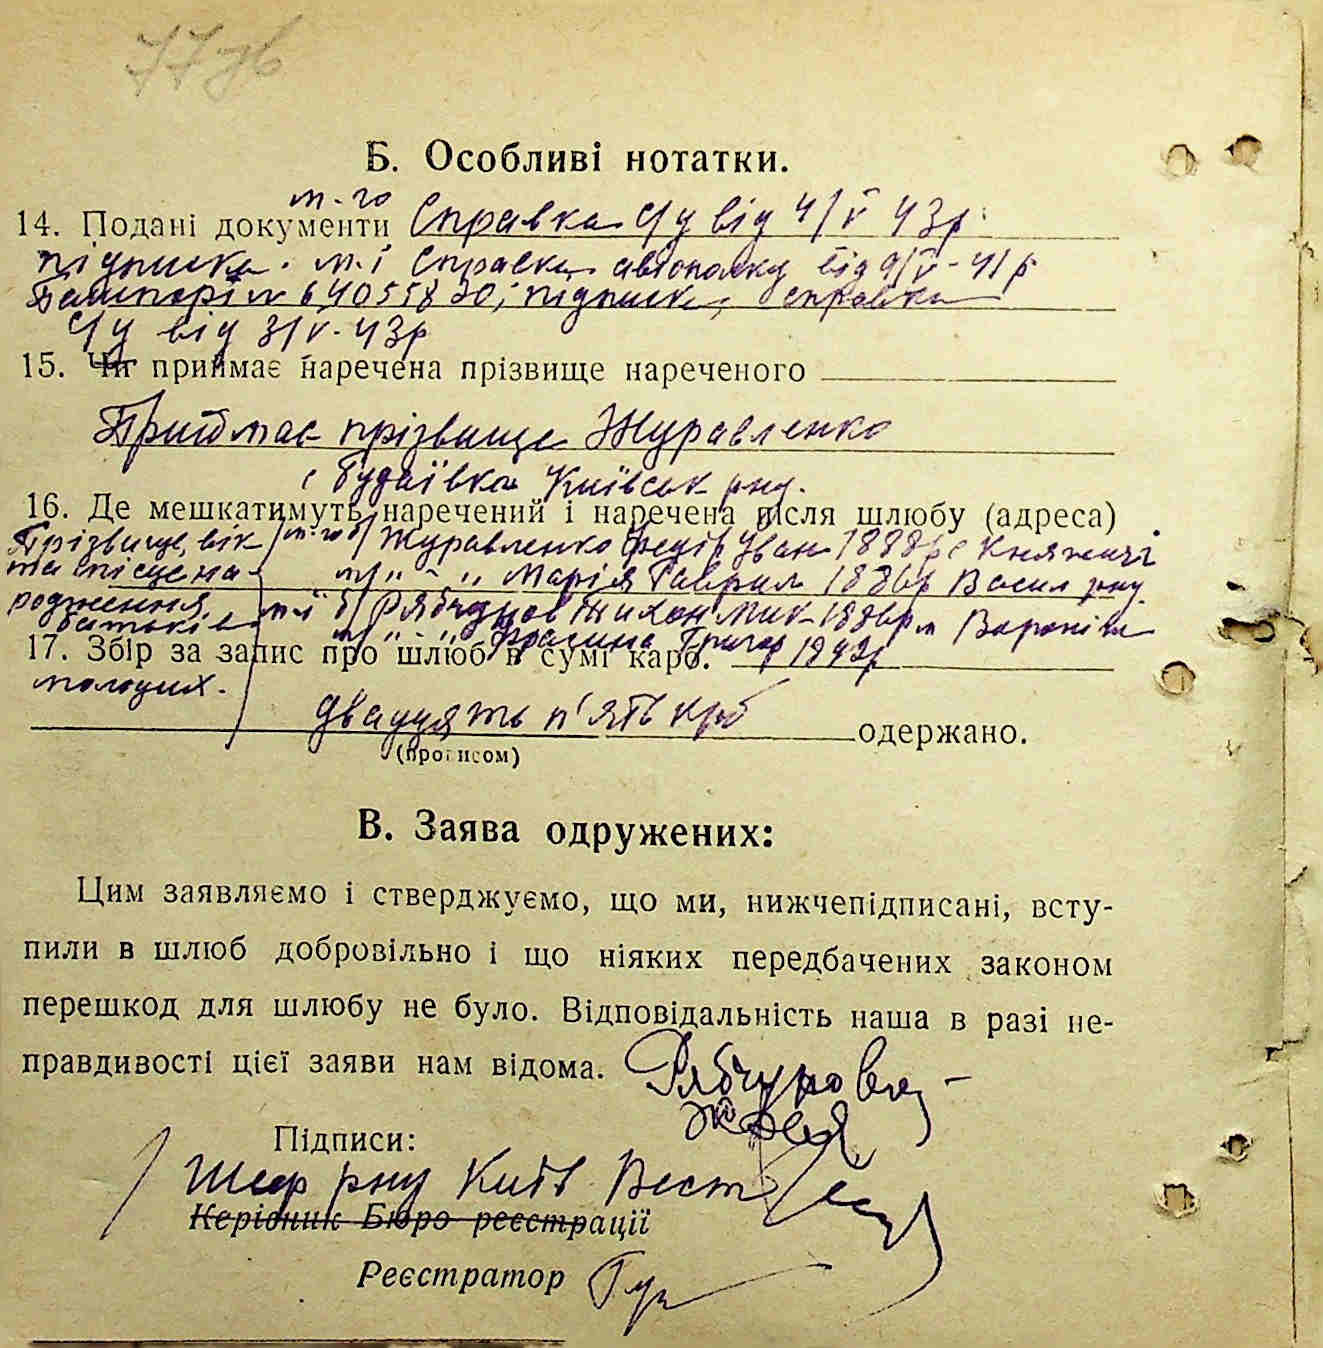 Б. Особливі нотатки.
м-го
14. Подані документи Справка С/у від 4/V 43р.
підписка. м.ї Справка автополку від 9/V-41р
Пашпорт № 64055820, підписка, справка
С/у від 3/V-43р
15. Чи приймає наречена прізвище нареченого
Приймає прізвище Журавленко
с Будаївка Київськ рну.
16. Де мешкатимуть наречений і наречена після шлюбу (адреса)
Прізвище, вік м-го б/ Журавленко Федір Іван 1888р с Княжичі
та місце на- м/ " - " Марія Гаврил 1886р Васил рну.
родження м-ї б/ Рябчунов Тихон Мик-1886р м
батьків м/ " - " Григор 1892р
17. Збір за запис про шлюб в сумі карб.
молодих.
двадцять п'ять крб одержано.
(прописом)
В. Заява одружених:
Цим заявляємо і стверджуємо, що ми, нижчепідписані, всту-
пили в шлюб добровільно і що ніяких передбачених законом
перешкод для шлюбу не було. Відповідальність наша в разі не-
правдивості цієї заяви нам відома.
Підписи:
Шеф рну Київ Вест
Керівник Бюро реєстрації
Реєстратор